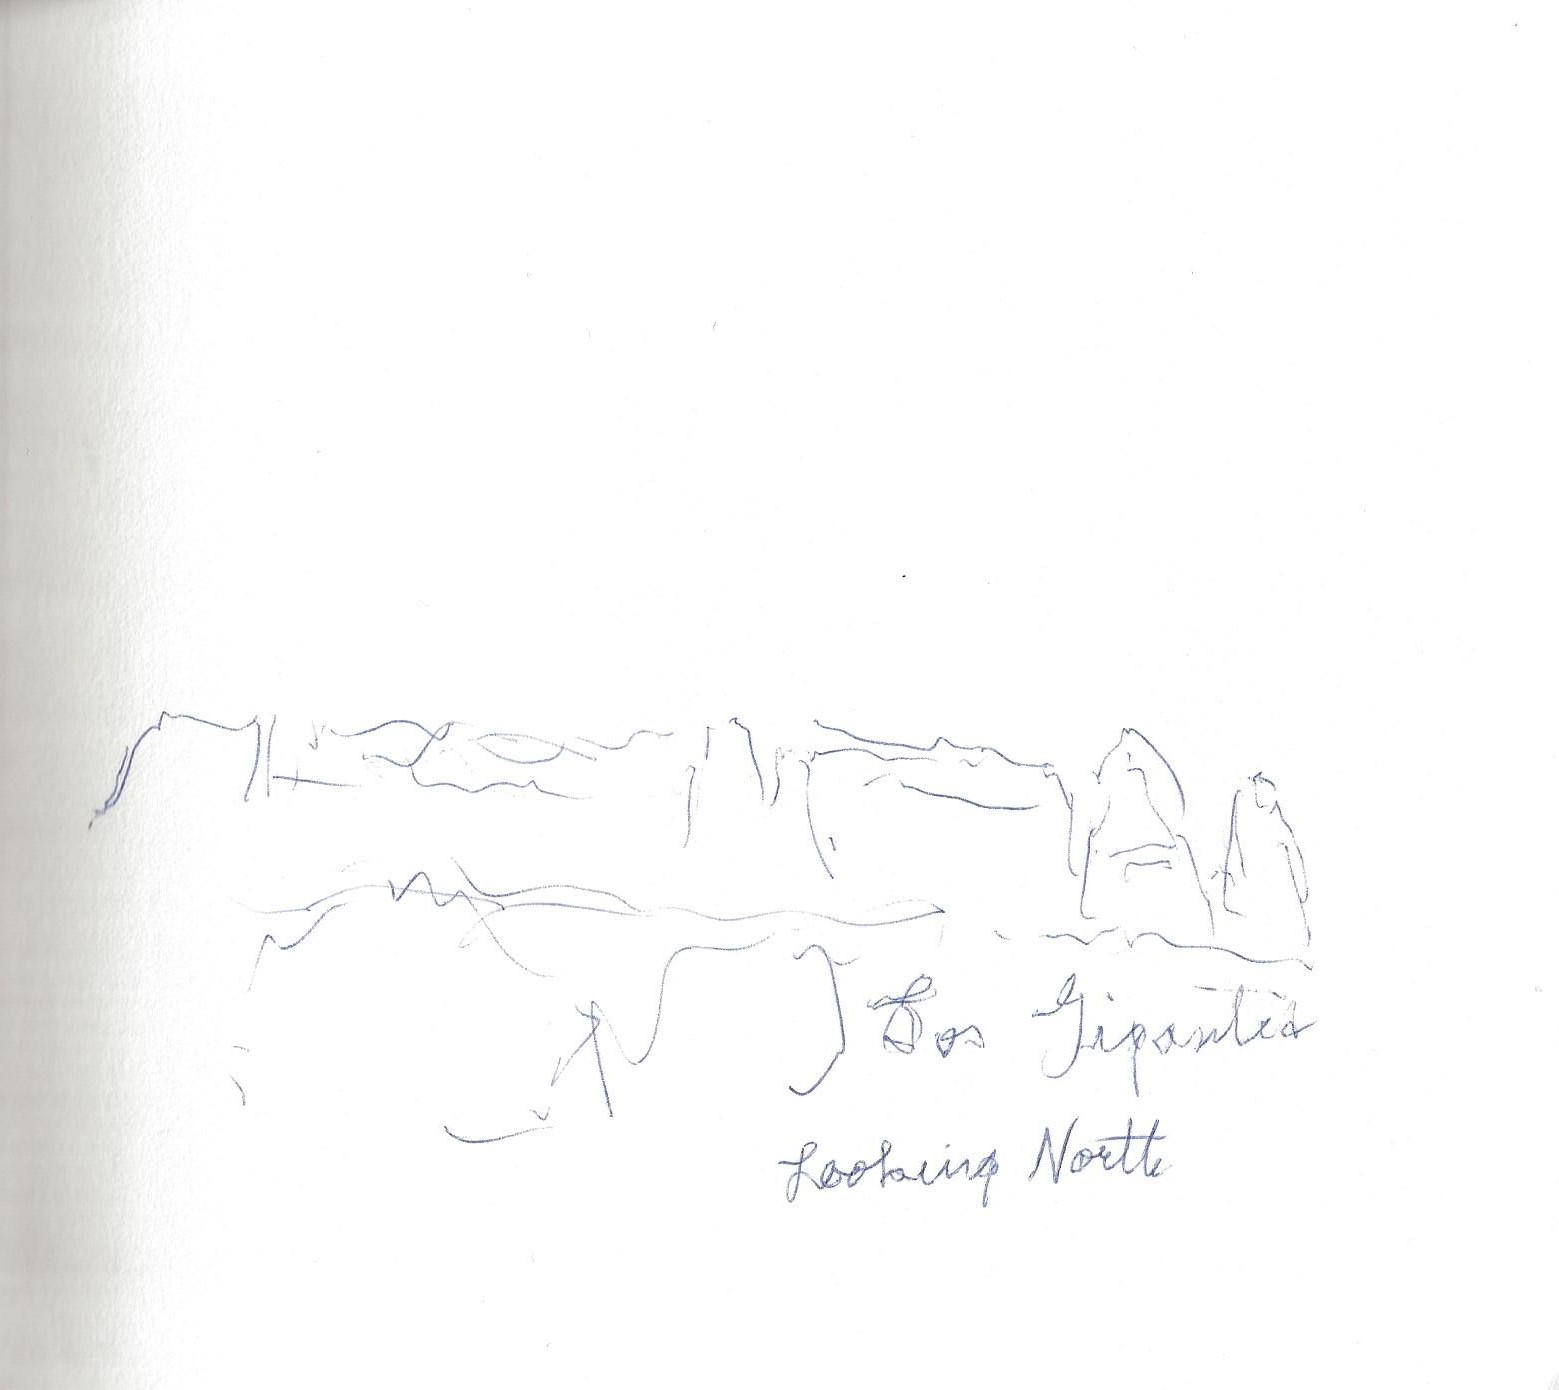 Los Gigantes
Looking North